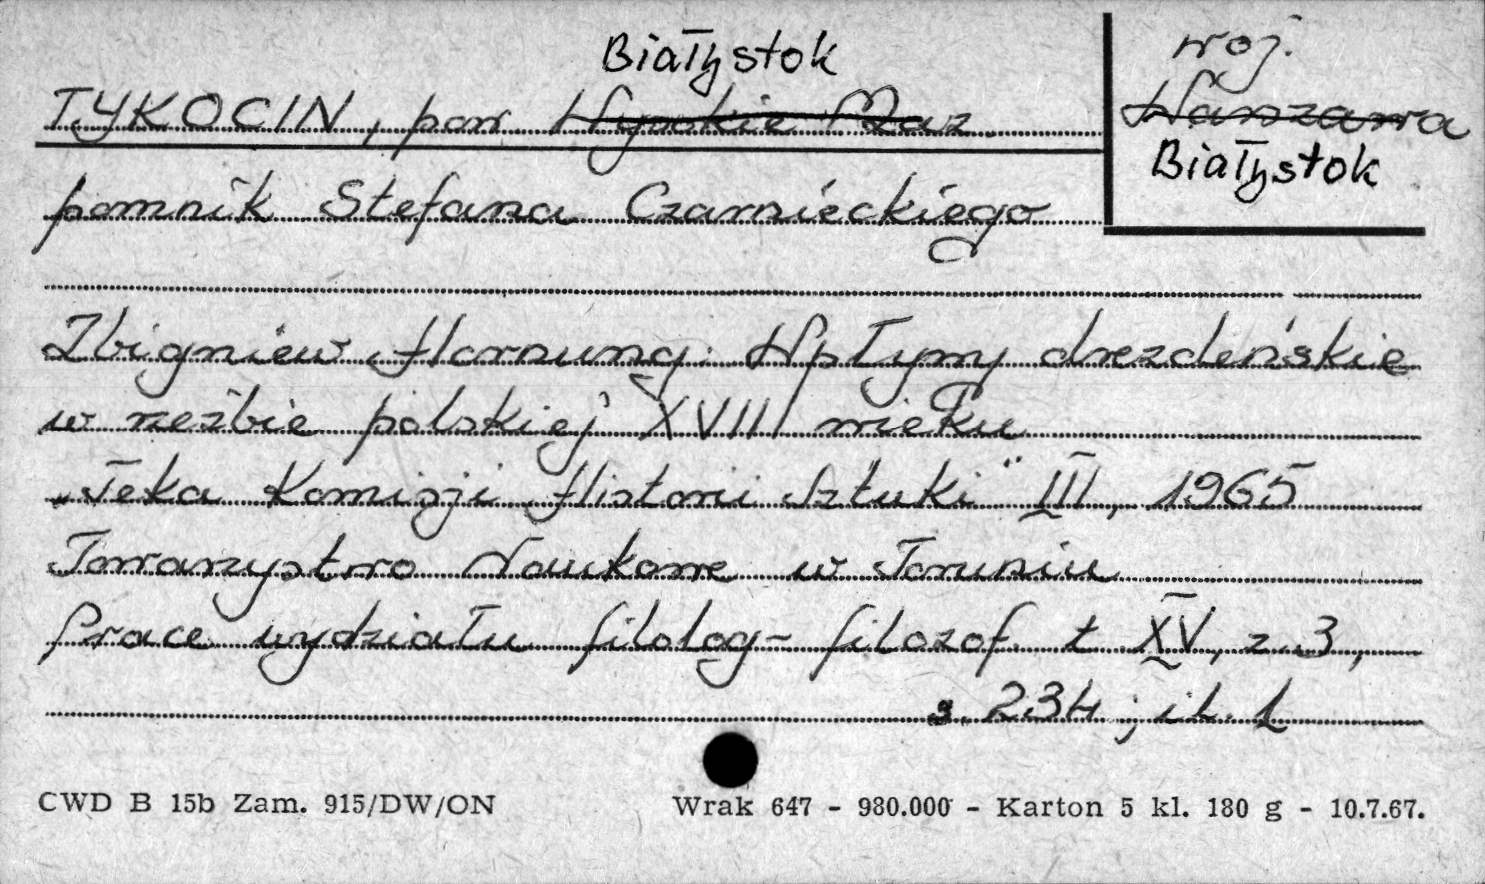 Białystok
TYKOCIN, pow. Wysokie Maz.
woj.
Warszawa
Białystok
pomnik Stefana Czarnieckiego
Zbigniew Hornung: Wpływy drezdeńskie
w rzeźbie polskiej XVIII wieku
„Teka Komisji Historii Sztuki" III, 1965
Towarzystwo Naukowe w Toruniu
Prace wydziału filolog-filozof. t. XV, z. 3,
s. 234; il. 1
CWD B 15b Zam. 915/DW/ON Wrak 647 - 980.000 - Karton 5 kl. 180 g - 10.7.67.